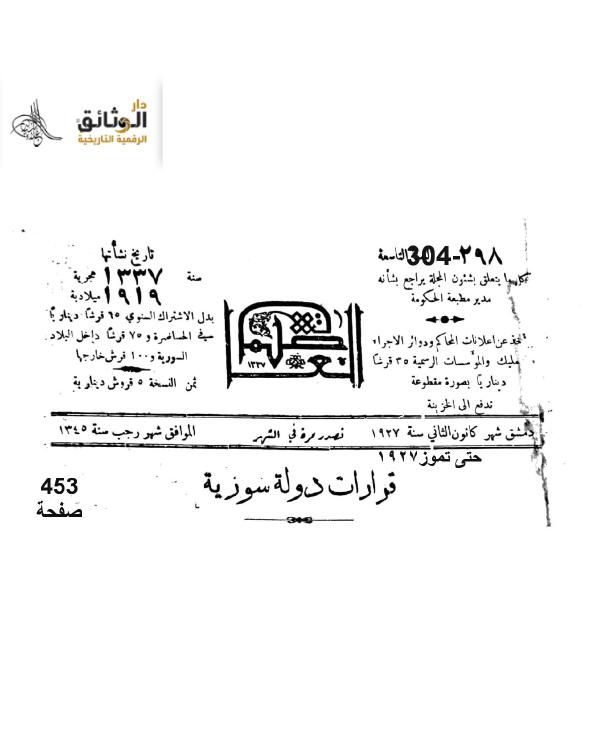 دار
الوثائق
الرقمية التاريخية
304-٢٩٨ التاسعة
كل ما يتعلق بشئون المجلة يراجع بشأنه
مدير مطبعة الحكومة
عن اعلانات المحاكم ودوائر الاجراء
والمؤسسات الرسمية ٣٥ قرشا
ديناريا بصورة مقطوعة
تدفع الى الخزينة
العاصمة
١٣٣٧
تاريخ نشأتها
سنة ١٣٣٧ هجرية
١٩١٩ ميلادية
بدل الاشتراك السنوي ٦٥ قرشا ديناريا
في العاصمة و ٧٥ قرشا داخل البلاد
السورية و ١٠٠ قرش خارجها
ثمن النسخة ٥ قروش دينارية
دمشق شهر كانون الثاني سنة ١٩٢٧ تصدر مرة في الشهر الموافق شهر رجب سنة ١٣٤٥
حتى تموز ١٩٢٧
قرارات دولة سورية
453
صفحة